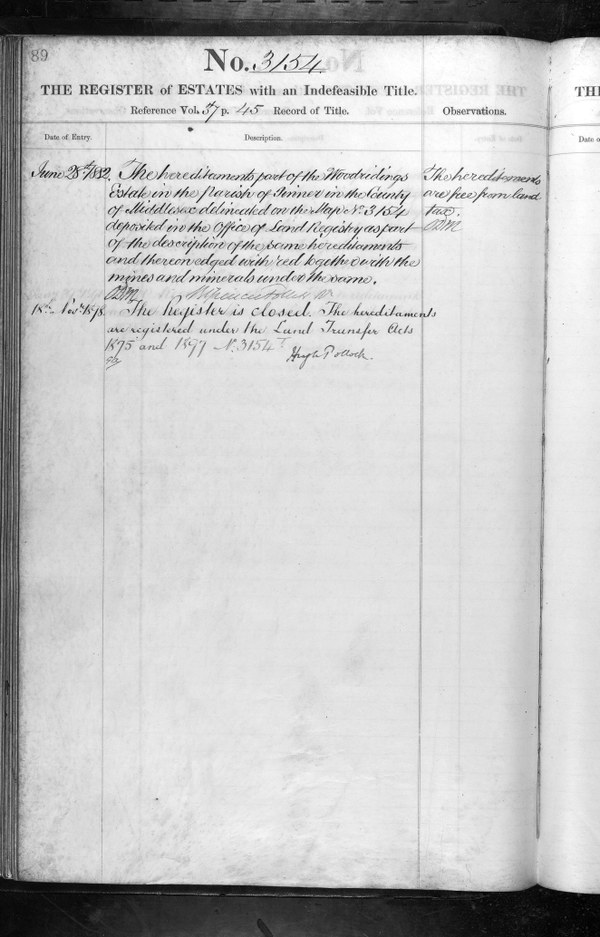 89
No. 3154.
THE REGISTER of ESTATES with an Indefeasible Title.
Reference Vol. 37 p. 45 Record of Title.
Observations.
Date of Entry.
Description.
June 28th 1882.
The hereditaments part of the Woodridings
Estate in the Parish of Pinner in the County
of Middlesex delineated on the Map No. 3154
deposited in the Office of Land Registry as part
of the description of the same hereditaments
and thereon edged with red together with the
mines and minerals under the same.
The hereditaments
are free from land
tax.
18th Novr. 1898.
The Register is closed. The hereditaments
are registered under the Land Transfer Acts
1875 and 1897 No. 3154
Hugh Pollock.
TH
Date o